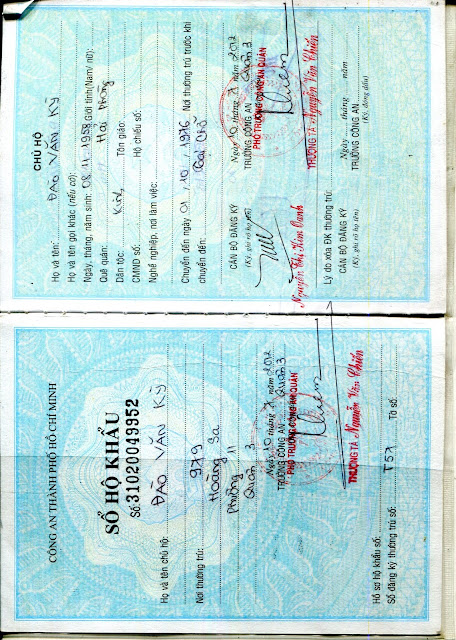 CÔNG AN THÀNH PHỐ HỒ CHÍ MINH
SỔ HỘ KHẨU
Số: 31020049952
Họ và tên chủ hộ: ĐÀO VĂN KỲ
Nơi thường trú: 979
Hoàng Sa
Phường 11
Quận 3
Ngày 10 tháng 7 năm 2012
TRƯỞNG CÔNG AN Quận 3
PHÓ TRƯỞNG CÔNG AN QUẬN
THƯỢNG TÁ Nguyễn Văn Chiến
Hồ sơ hộ khẩu số:
Số đăng ký thường trú số: T57 Tờ số:
CHỦ HỘ
Họ và tên: ĐÀO VĂN KỲ
Họ và tên gọi khác (nếu có):
Ngày, tháng, năm sinh: 08.11.1958 Giới tính(Nam/ nữ):
Quê quán: Hải Phòng
Dân tộc: Kinh Tôn giáo:
CMND số: Hộ chiếu số:
Nghề nghiệp, nơi làm việc:
Chuyển đến ngày 01/10/1976 Nơi thường trú trước khi
chuyển đến:
Ngày 10 tháng 7 năm 2012
CÁN BỘ ĐĂNG KÝ TRƯỞNG CÔNG AN Quận 3
(Ký, ghi rõ họ tên) PHÓ TRƯỞNG CÔNG AN QUẬN
Nguyễn Thị Kim Oanh THƯỢNG TÁ Nguyễn Văn Chiến
Lý do xóa ĐK thường trú:
Ngày tháng năm
CÁN BỘ ĐĂNG KÝ TRƯỞNG CÔNG AN
(Ký, ghi rõ họ tên) (Ký, đóng dấu)